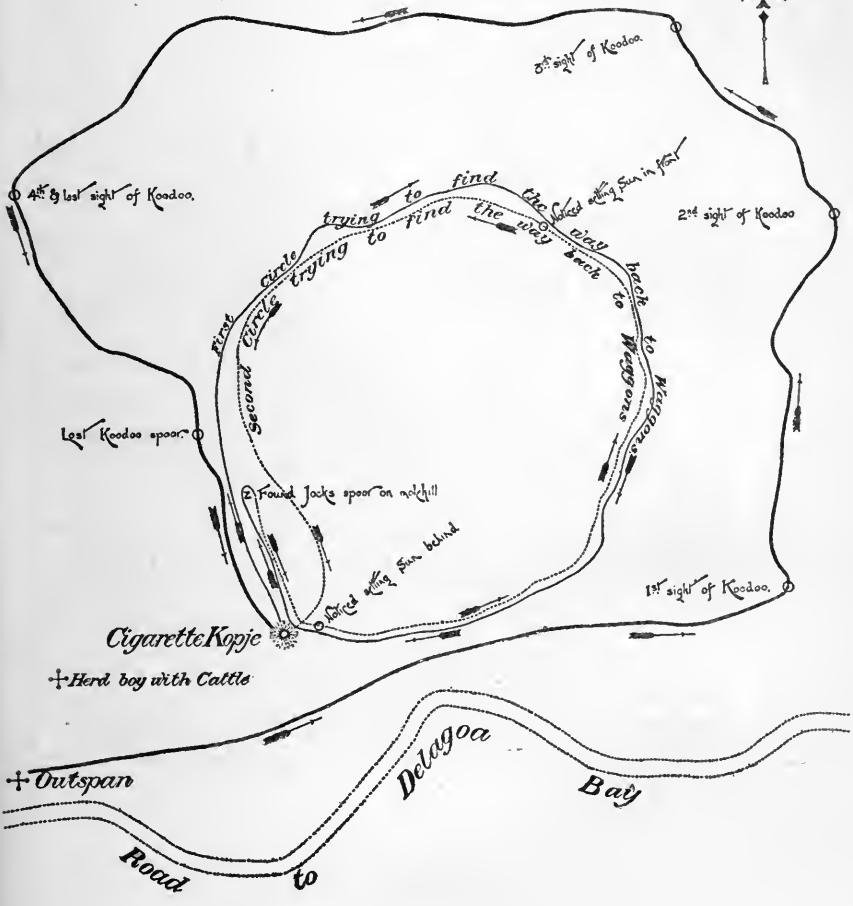 3rd sight of Koodoo.
4th & last sight of Koodoo.
2nd sight of Koodoo
Noticed setting Sun in front
First circle trying to find the way back to Waggons.
Second Circle trying to find the way back to Waggons
Lost Koodoo spoor.
2 Found Jocks spoor on molehill
Noticed setting Sun behind
1st sight of Koodoo.
Cigarette Kopje
Herd boy with Cattle
Outspan
Road to Delagoa Bay